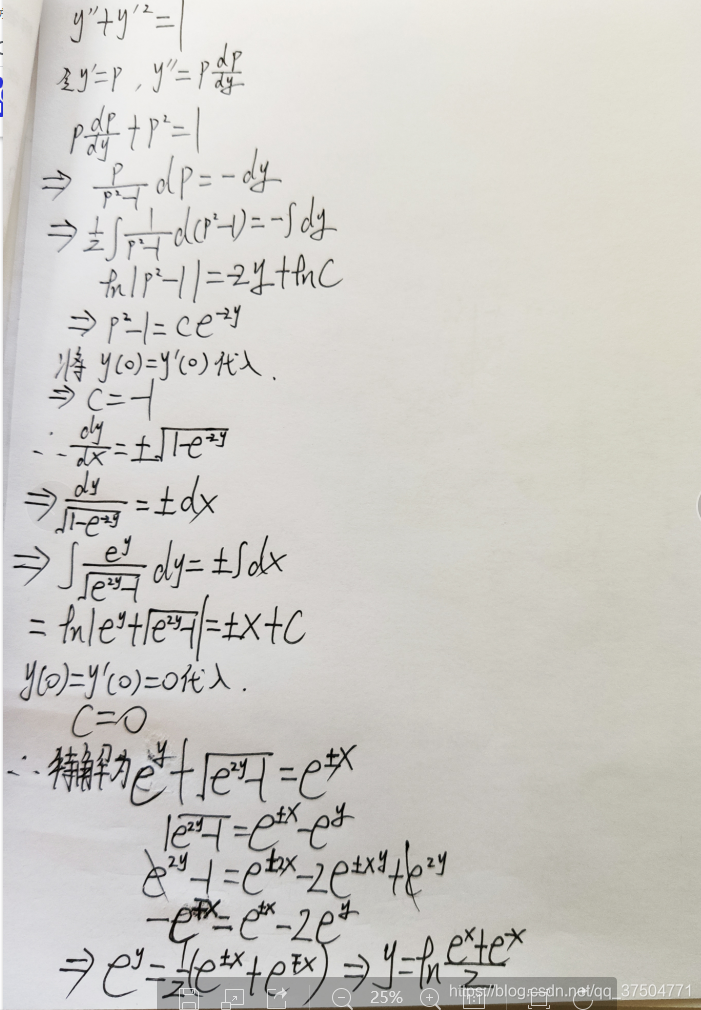 y''+y'²=1
令y'=p , y''=p dp/dy
p dp/dy + p²=1
⇒ p/(p²-1) dp=-dy
⇒ 1/2 ∫ 1/(p²-1) d(p²-1)=-∫dy
ln|p²-1|=-2y+lnC
⇒ p²-1=Ce^(-2y)
将 y(0)=y'(0)代入.
⇒ C=-1
∴ dy/dx=±√(1-e^(-2y))
⇒ dy/√(1-e^(-2y)) = ±dx
⇒ ∫ e^y/√(e^(2y)-1) dy=±∫dx
= ln|e^y+√(e^(2y)-1)|=±x+C
y(0)=y'(0)=0代入.
C=0
∴ 特解为 e^y+√(e^(2y)-1)=e^(±x)
√(e^(2y)-1)=e^(±x)-e^y
e^(2y)-1=e^(±2x)-2e^(±xy)+e^(2y)
-e^(∓x)=e^(±x)-2e^y
⇒ e^y=1/2(e^(±x)+e^(∓x)) ⇒ y=ln (e^x+e^(-x))/2
25%
https://blog.csdn.net/qq_37504771